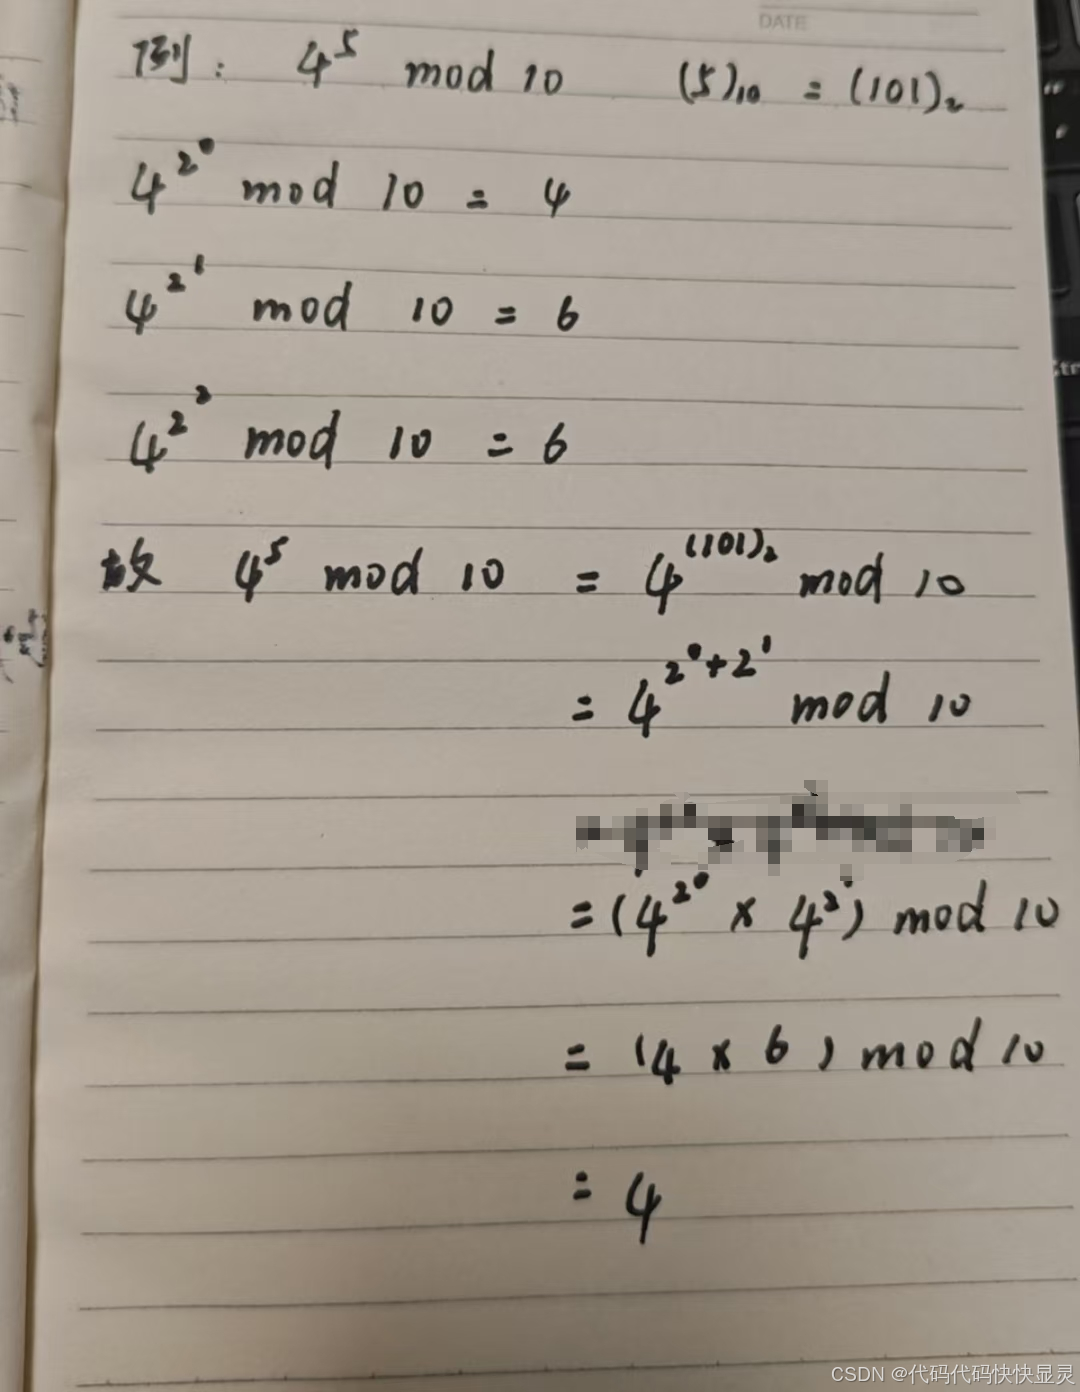 DATE
例: 4^5 mod 10 (5)₁₀ = (101)₂
4^{2^0} mod 10 = 4
4^{2^1} mod 10 = 6
4^{2^2} mod 10 = 6
故 4^5 mod 10 = 4^{(101)₂} mod 10
= 4^{2^0+2^1} mod 10
=(4^{2^0} × 4^{2^1}) mod 10
= (4 × 6) mod 10
= 4
CSDN @代码代码快快显灵